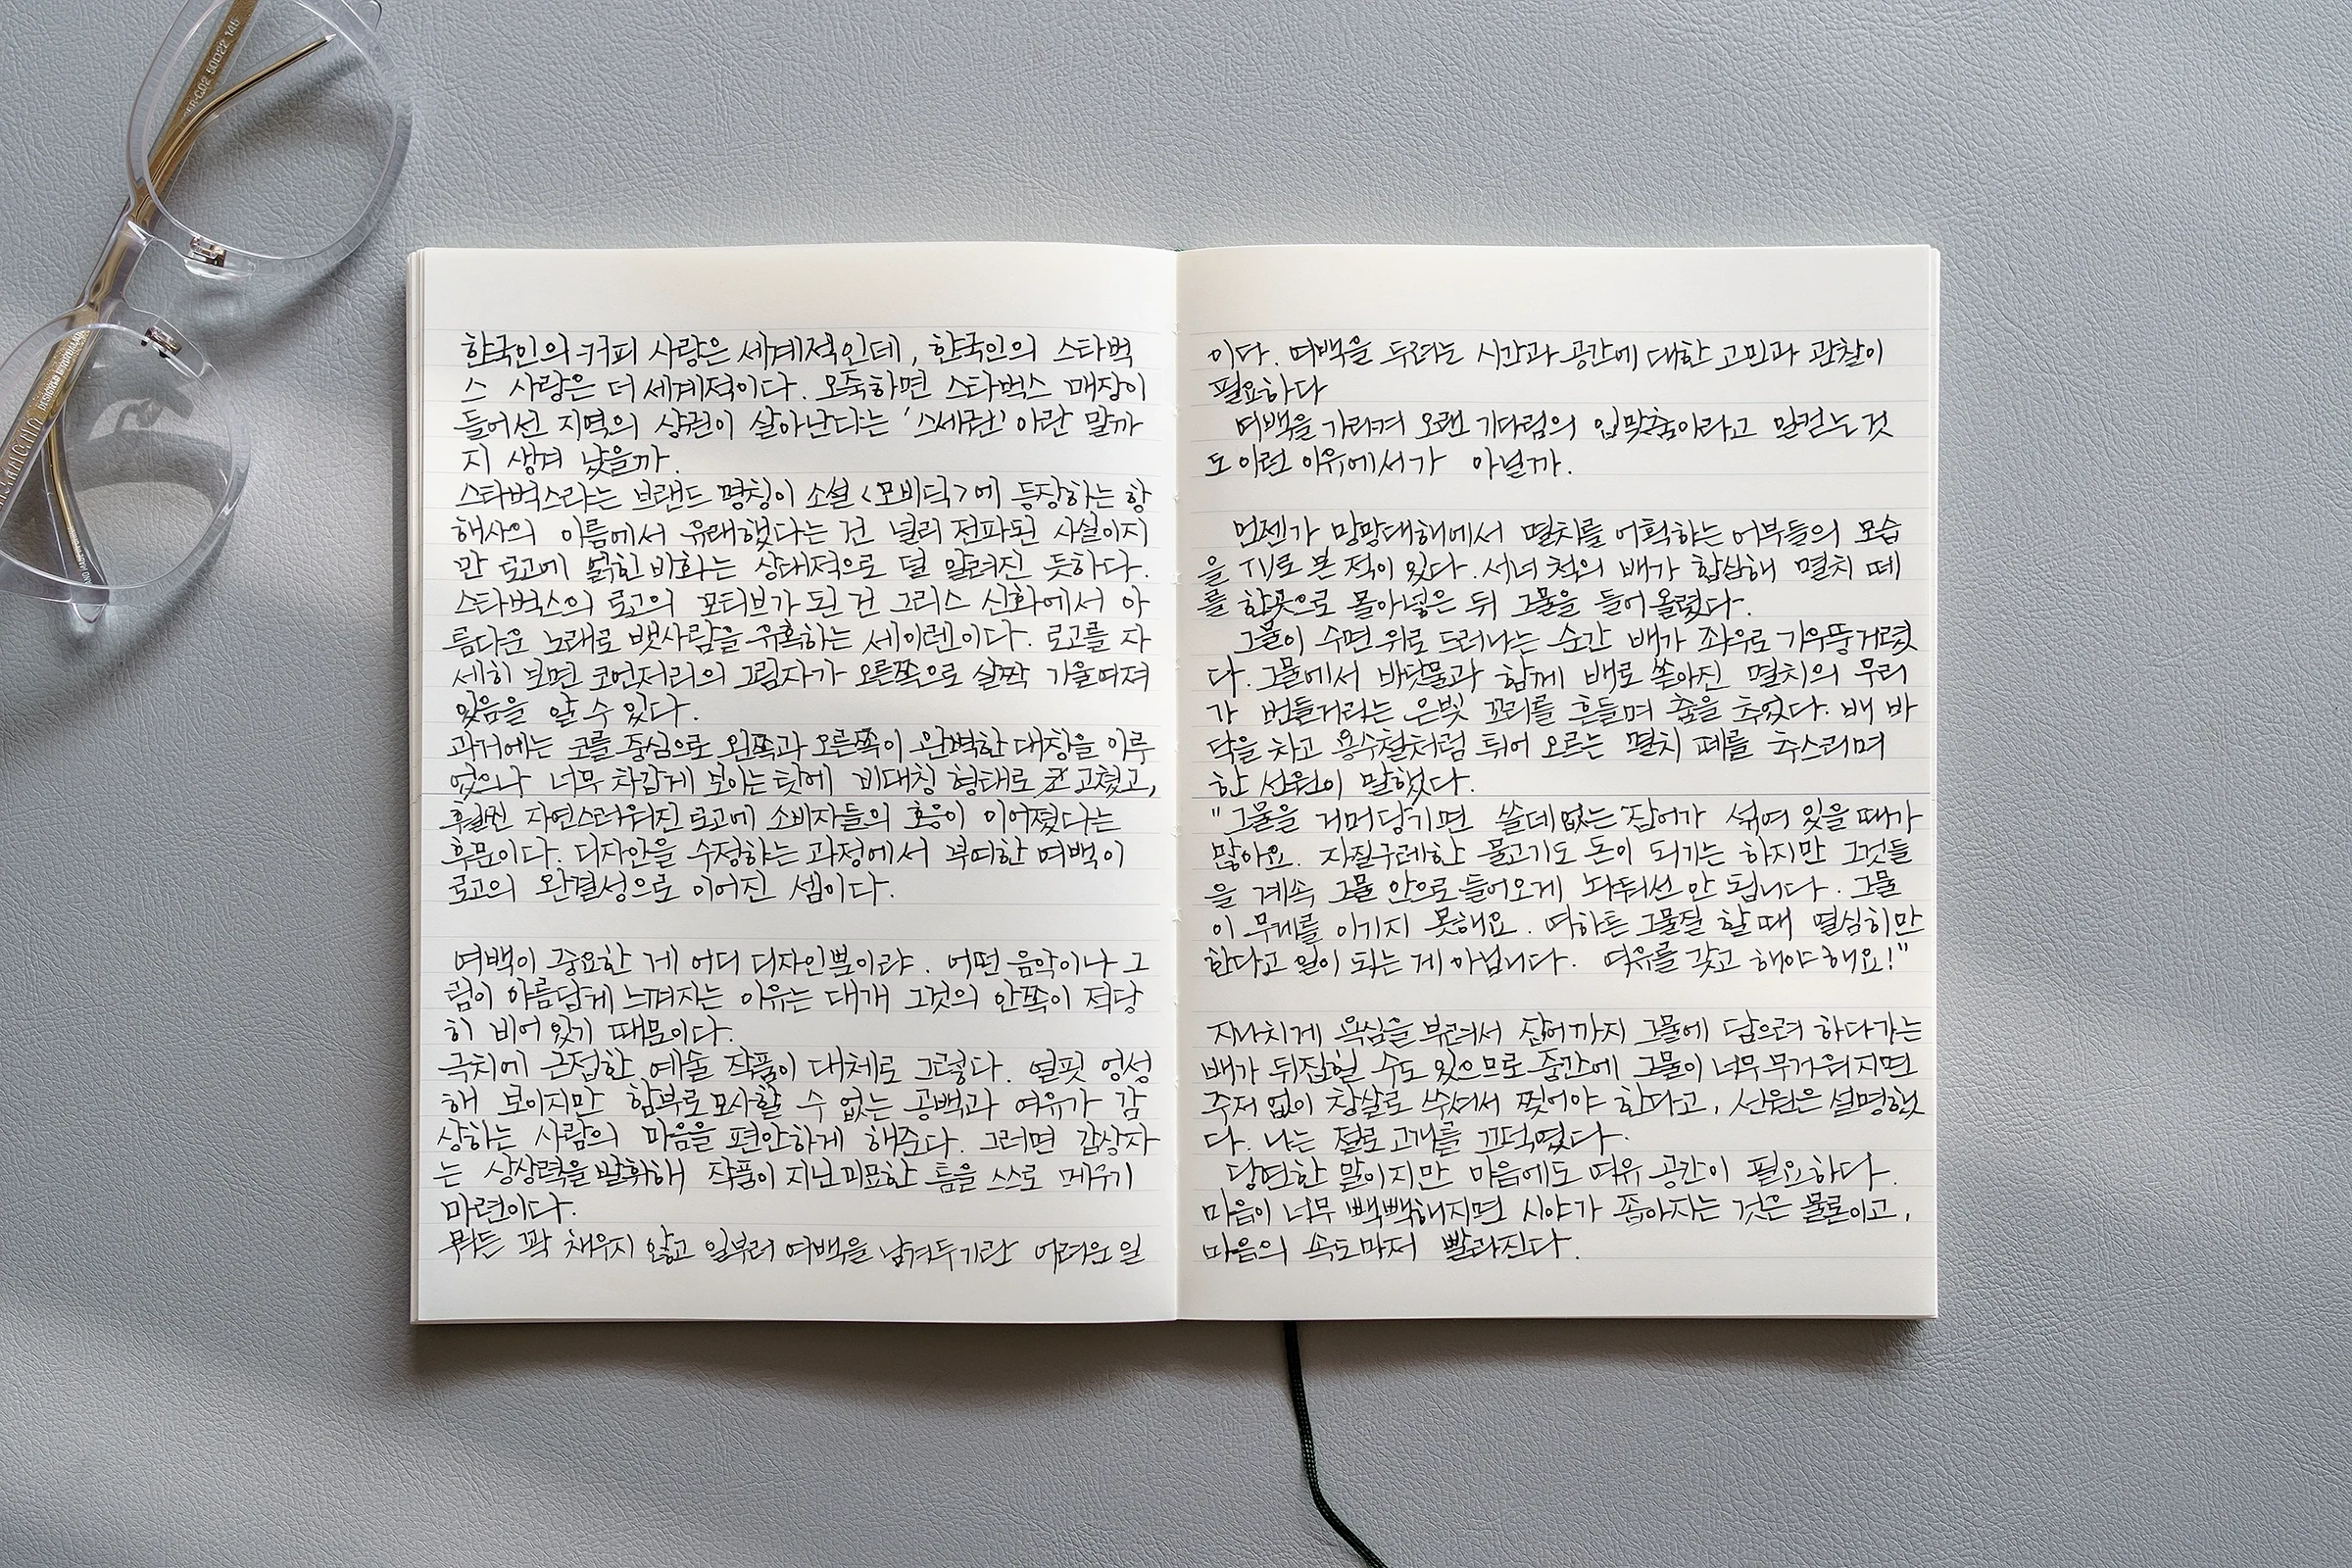 한국인의 커피 사랑은 세계적인데, 한국인의 스타벅
스 사랑은 더 세계적이다. 오죽하면 스타벅스 매장이
들어선 지역의 상권이 살아난다는 '스세권' 이란 말까
지 생겨 났을까.
스타벅스라는 브랜드 명칭이 소설 <모비딕>에 등장하는 항
해사의 이름에서 유래했다는 건 널리 전파된 사실이지
만 로고에 얽힌 비화는 상대적으로 덜 알려진 듯하다.
스타벅스의 로고의 모티브가 된 건 그리스 신화에서 아
름다운 노래로 뱃사람을 유혹하는 세이렌이다. 로고를 자
세히 보면 코언저리의 그림자가 오른쪽으로 살짝 기울여져
있음을 알 수 있다.
과거에는 코를 중심으로 왼쪽과 오른쪽이 완벽한 대칭을 이루
었으나 너무 차갑게 보이는 탓에 비대칭 형태로 뜯어 고쳤고,
훨씬 자연스러워진 로고에 소비자들의 호응이 이어졌다는
후문이다. 디자인을 수정하는 과정에서 부여한 여백이
로고의 완결성으로 이어진 셈이다.
여백이 중요한 게 어디 디자인뿐이랴. 어떤 음악이나 그
림이 아름답게 느껴지는 이유는 대개 그것의 안쪽이 적당
히 비어 있기 때문이다.
극치에 근접한 예술 작품이 대체로 그렇다. 얼핏 엉성
해 보이지만 함부로 모사할 수 없는 공백과 여유가 감
상하는 사람의 마음을 편안하게 해준다. 그러면 감상자
는 상상력을 발휘해 작품이 지닌 미묘한 틈을 스스로 메우기
마련이다.
뭐든 꽉 채우지 않고 일부러 여백을 남겨두기란 어려운 일
이다. 여백을 두려는 시간과 공간에 대한 고민과 관찰이
필요하다
여백을 가리켜 오랜 기다림의 입맞춤이라고 일컫는 것
도 이런 이유에서가 아닐까.
언젠가 망망대해에서 멸치를 어획하는 어부들의 모습
을 TV로 본 적이 있다. 서너 척의 배가 합심해 멸치 떼
를 한곳으로 몰아넣은 뒤 그물을 들어 올렸다.
그물이 수면 위로 드러나는 순간 배가 좌우로 기우뚱거렸
다. 그물에서 바닷물과 함께 배로 쏟아진 멸치의 무리
가 번들거리는 은빛 꼬리를 흔들며 춤을 추었다. 배 바
닥을 차고 용수철처럼 튀어 오르는 멸치 떼를 추스리며
한 선원이 말했다.
"그물을 거머당기면 쓸데없는 잡어가 섞여 있을 때가
많아요. 자질구레한 물고기도 돈이 되기는 하지만 그것들
을 계속 그물 안으로 들어오게 놔둬선 안 됩니다. 그물
이 무게를 이기지 못해요. 여하튼 그물질 할 때 열심히만
한다고 일이 되는 게 아닙니다. 여유를 갖고 해야 해요!"
지나치게 욕심을 부려서 잡어까지 그물에 담으려 하다가는
배가 뒤집힐 수도 있으므로 중간에 그물이 너무 무거워지면
주저 없이 창살로 쑤셔서 찢어야 한다고, 선원은 설명했
다. 나는 절로 고개를 끄덕였다.
당연한 말이지만 마음에도 여유 공간이 필요하다.
마음이 너무 빽빽해지면 시야가 좁아지는 것은 물론이고,
마음의 속도마저 빨라진다.